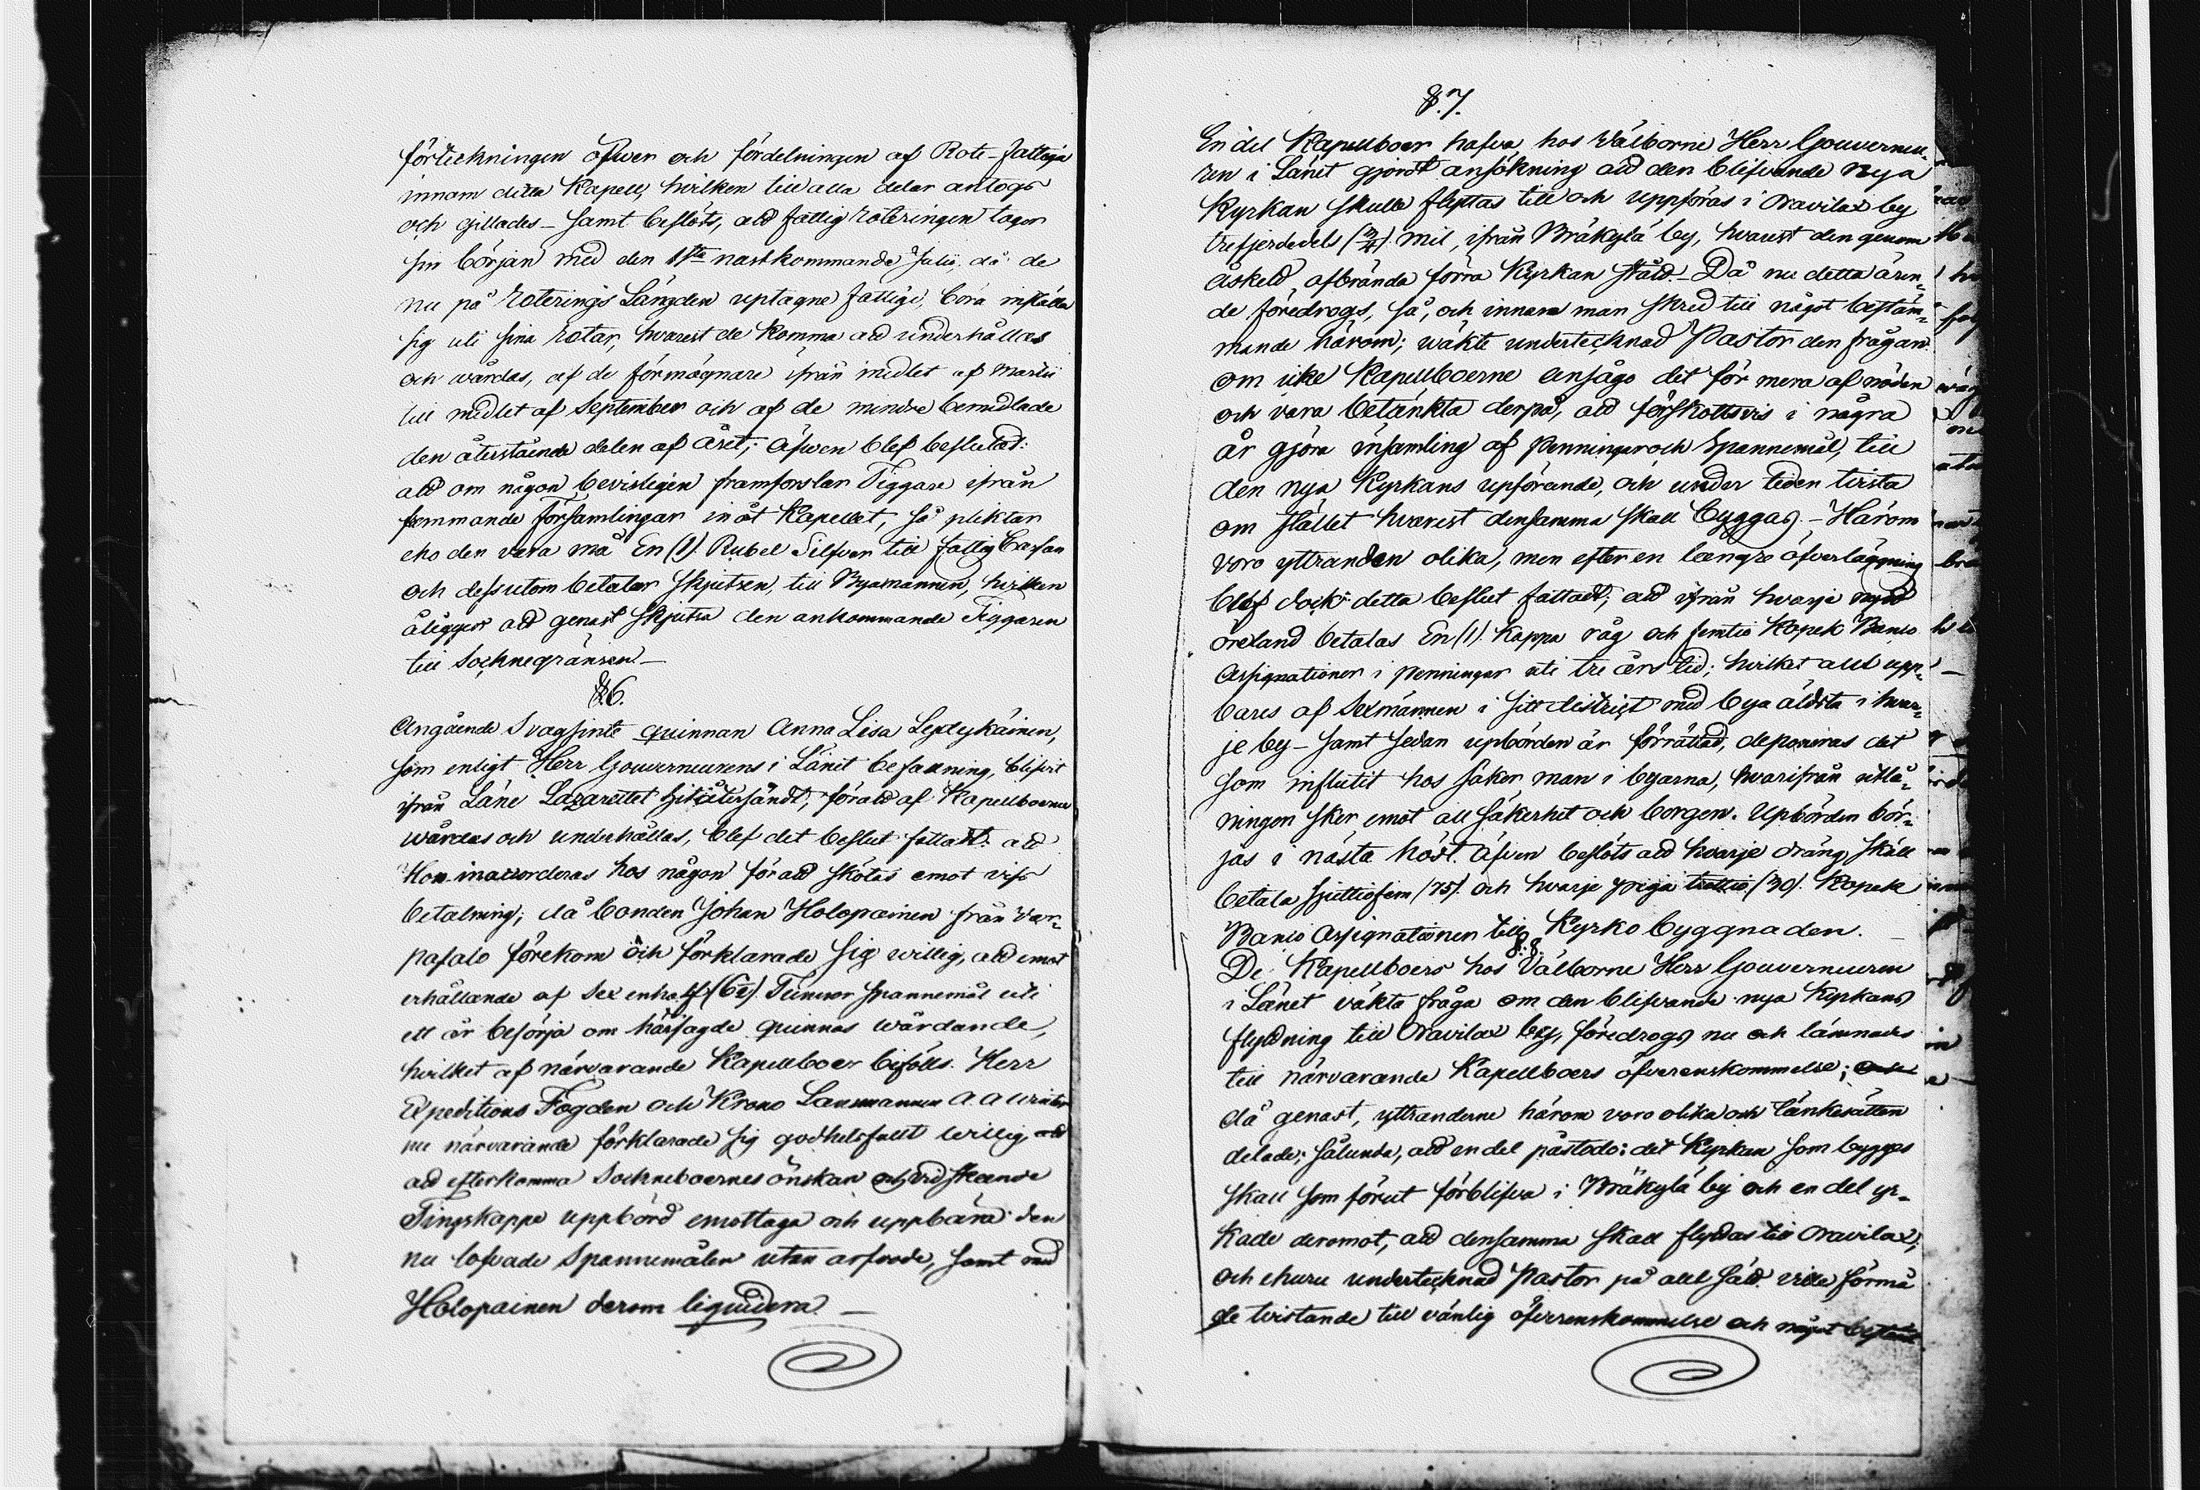 förteckningen öfwer och fördelningen af Rote-fattiga
innom detta Kapell, hvilken till alla delar antogs
och gillades – samt beslöts, att fattig roteringen tager
sin början med den 1sta nästkommande Julii, då de
nu på roterings Längden uptagne fattige, böra inställa
sig uti sina rotar, hwarest de komma att underhållas
och wårdas, af de förmögnare ifrån medlet af Martii
till medlet af September och af de mindre bemedlade
den återstående delen af året; äfwen blef beslutad:
att om någon bevisligen framforslar Tiggare ifrån
främmande församlingar inåt Kapellet, så pliktar
eho den vara må En (1) Rubel Silfver till fattig Cassan
och dessutom betalar skjutsen, till Byamännen, hvilken
åligger att genast skjutsa den ankommande Tiggaren
till Sochnegränsen. –
§ 6.
Angående Svagsinte quinnan Anna Lisa Leskykäinen,
som enligt Herr Gouverneurens i Länet befallning, blifvit
ifrån Läne Lazarettet hitåtersändt, för att af Kapellboerne
wårdas och underhållas, blef det beslut fattatt: att
Hon inaccorderas hos någon för att skötas emot viss
betalning; då bonden Johan Holopainen från Var-
pasalo förekom och förklarade sig willig, att emot
erhållande af Sex en half (6½) Tunnor spannemål uti
ett år besörja om härsagde quinnas wårdande,
hvilket af närvarande Kapellboer bifölls. Herr
Expeditions Fogden och Krono Länsmannen A. A
nu närvarande förklarade sig godhetsfullt willig att
att efterkomma Sochneboernes önskan och vid skeende
Tingskappe uppbörd emottaga och uppbära den
nu lofvade Spannemålen utan arfvode, samt med
Holopainen derom liquidera. –
§ 7.
En del Kapellboer hafva hos Välborne Herr Gouverneu-
ren i Länet gjordt ansökning att den blifvande nya
Kyrkan skulle flyttas till och uppföras i Oravilax by
trefjerdedels (¾) mil, ifrån Bräkylä by, hwarest den genom
åskeld afbrända förra Kyrkan stått. – Då nu detta ären-
de föredrogs, så, och innan man skred till någst bestäm-
mande härom; wäkte undertecknad Pastor den frågan
om icke Kapellboerne ansågo det för mera af nöden
och vara betänkta derpå, att förskottsvis i några
år gjöra insamling af penningar och Spannemål, till
den nya Kyrkans upförande, och under tiden tvista
om stället hwarest densamma skall byggas. – Härom
voro yttranden olika, men efter en længre öfverläggning
blef dock detta beslut fattatt; att ifrån hvarje
öresland betalas En (1) Kappa råg och femtio Kopek Banco
Assignationer i penningar uti tre års tid; hvilket allt upp-
bäres af Sexmännen i sitt district med bya äldsta i hvar-
je by – samt sedan upbörden är förrättad, deponeras det
som influtit hos säker man i byarna, hwarifrån utlå-
ningen sker emot all säkerhet och borgen. Upbörden bör-
jas i nästa höst. Äfven beslöts att hvarje dräng skall
betala sjuttiofem (75) och hvarje piga trettio (30) Kopek
Banco Assignationer till Kyrko byggnaden. –
§ 8
De Kapellboers hos Välborne Herr Gouverneuren
i Länet väkta fråga om den blifvande nya Kyrkans
flyttning till Oravilax by, föredrogs nu och lämnades
till närvarande Kapellboers öfverenskommelse;
då genast, yttranderne härom voro olika och tänkesätten
delade; sålunda, att en del påstodo: det Kyrkan som bygges
skall som förut förblifva i Bräkylä by och en del yr-
kade deremot, att densamma skall flyttas till Oravilax,
och ehuru undertecknad Pastor på allt sätt ville förmå
de tvistande till vänlig öfverenskommelse och något bestämt